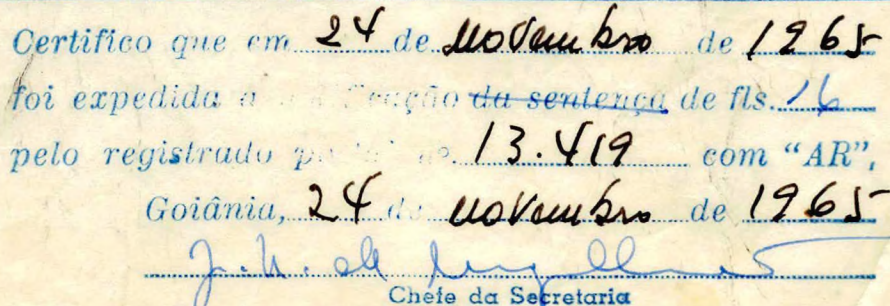 Certifico que em 24 de novembro de 1965
foi expedida a notificação da sentença de fls. 16
pelo registrado postal nº 13.419 com "AR",
Goiânia, 24 de novembro de 1965
Chefe da Secretaria